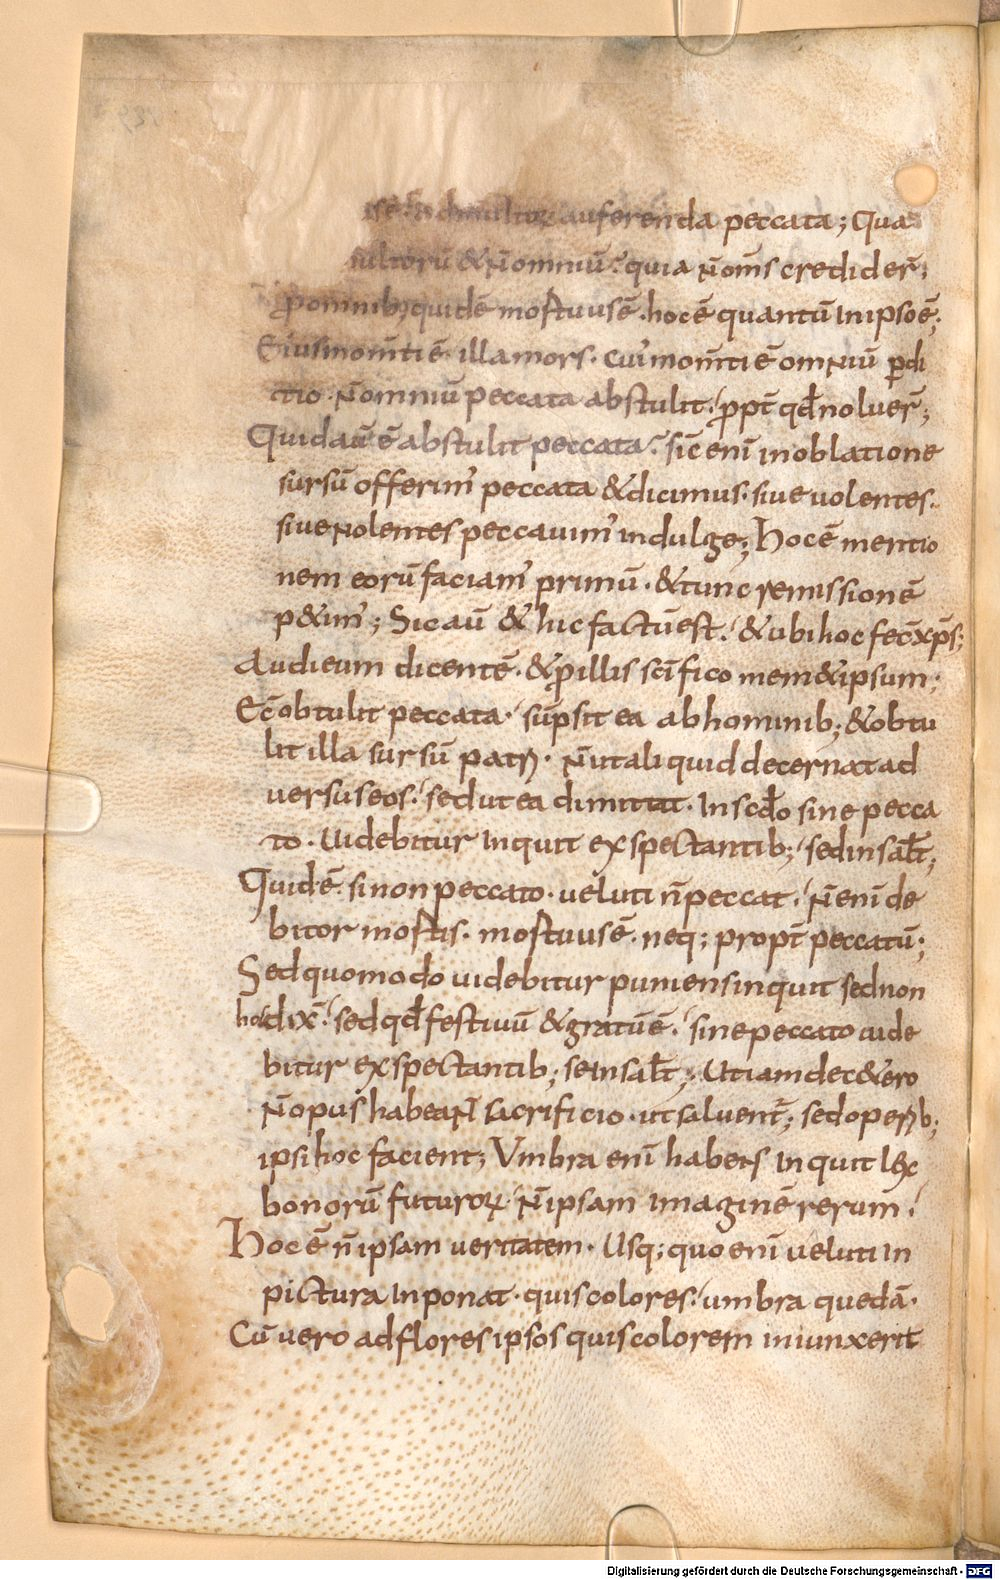 auferenda peccata; Qua
multorū & n̄ omniū? quia n̄ om̄s credider̄;
p̄ omnib; quidē mortuus ē. hoc ē quantū in ipso ē;
Eiusmom̄ti ē illa mors. cui' mom̄ti ē omniū p̄di
tio. N̄ omniū peccata abstulit. ꝓpt̄ qd̄ noluer̄;
Quid aū ē abstulit peccata? sic̄ enī in oblatione
sursū offerim' peccata & dicimus. sive volentes.
sive nolentes peccavim' indulge; Hoc ē mentio
nem eorū faciam' primū. & tunc remissionē
p&im'; Sic aū & hic factū est. & ubi hoc fec̄ xp̄s;
Audi eum dicentē. & ꝓ illis sc̄ifico mem&ipsum;
Ecc̄ obtulit peccata. sūpsit ea ab hominib; & obtu
lit illa sursū patri. N̄ ut aliquid decernat ad
versus eos. sed ut ea dimittat. In sc̄do sine pecca
to. Videbitur inquit exspectantib; sed in salt̄;
Quid ē. sinon peccato. veluti n̄ peccat. N̄ enī de
bitor mortis. mortuus ē. neq; propt̄ peccatū;
Sed quomodo videbitur puniens inquit sed non
hoc dix̄. sed qd̄ festivū & gratū ē. sine peccato vide
bitur exspectantib; se in salt̄; Ut iam dec&ero
N̄ opus habeant sacrificio. ut salvent'; sed operib;
ipsi hoc facient; Umbra enī habens inquit lex
bonorū futuroꝝ. n̄ ipsam imaginē rerum.
Hoc ē n̄ ipsam veritatem. Usq; quo enī veluti in
pictura inponat. quis colores. umbra quedā.
Cū vero ad flores ipsos quis colorem iniunxerit
Digitalisierung gefördert durch die Deutsche Forschungsgemeinschaft - DFG